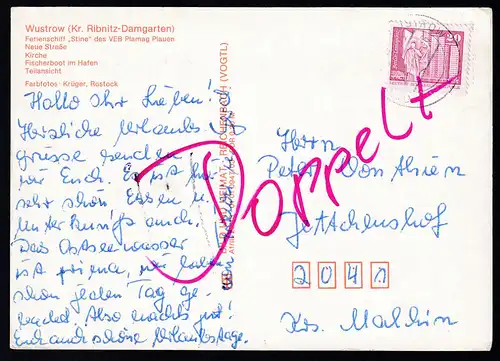 Wustrow (Kr. Ribnitz-Damgarten)
Ferienschiff „Stine" des VEB Plamag Plauen
Neue Straße
Kirche
Fischerboot im Hafen
Teilansicht
Farbfotos · Krüger, Rostock
Hallo Ihr Lieben!
Herzliche Urlaubs-
grüsse senden
wir Euch. Es ist hier
sehr schön Essen u.
Unterkunft auch.
Das Ostseewasser
ist prima, wir haben
schon jeden Tag ge-
badet. Also machts gut!
Euch auch schöne Urlaubstage.
BILD UND HEIMAT REICHENBACH (VOGTL)
20
Doppelt
Herrn
Peter
Gottschenshof
2041
Krs. Malchin